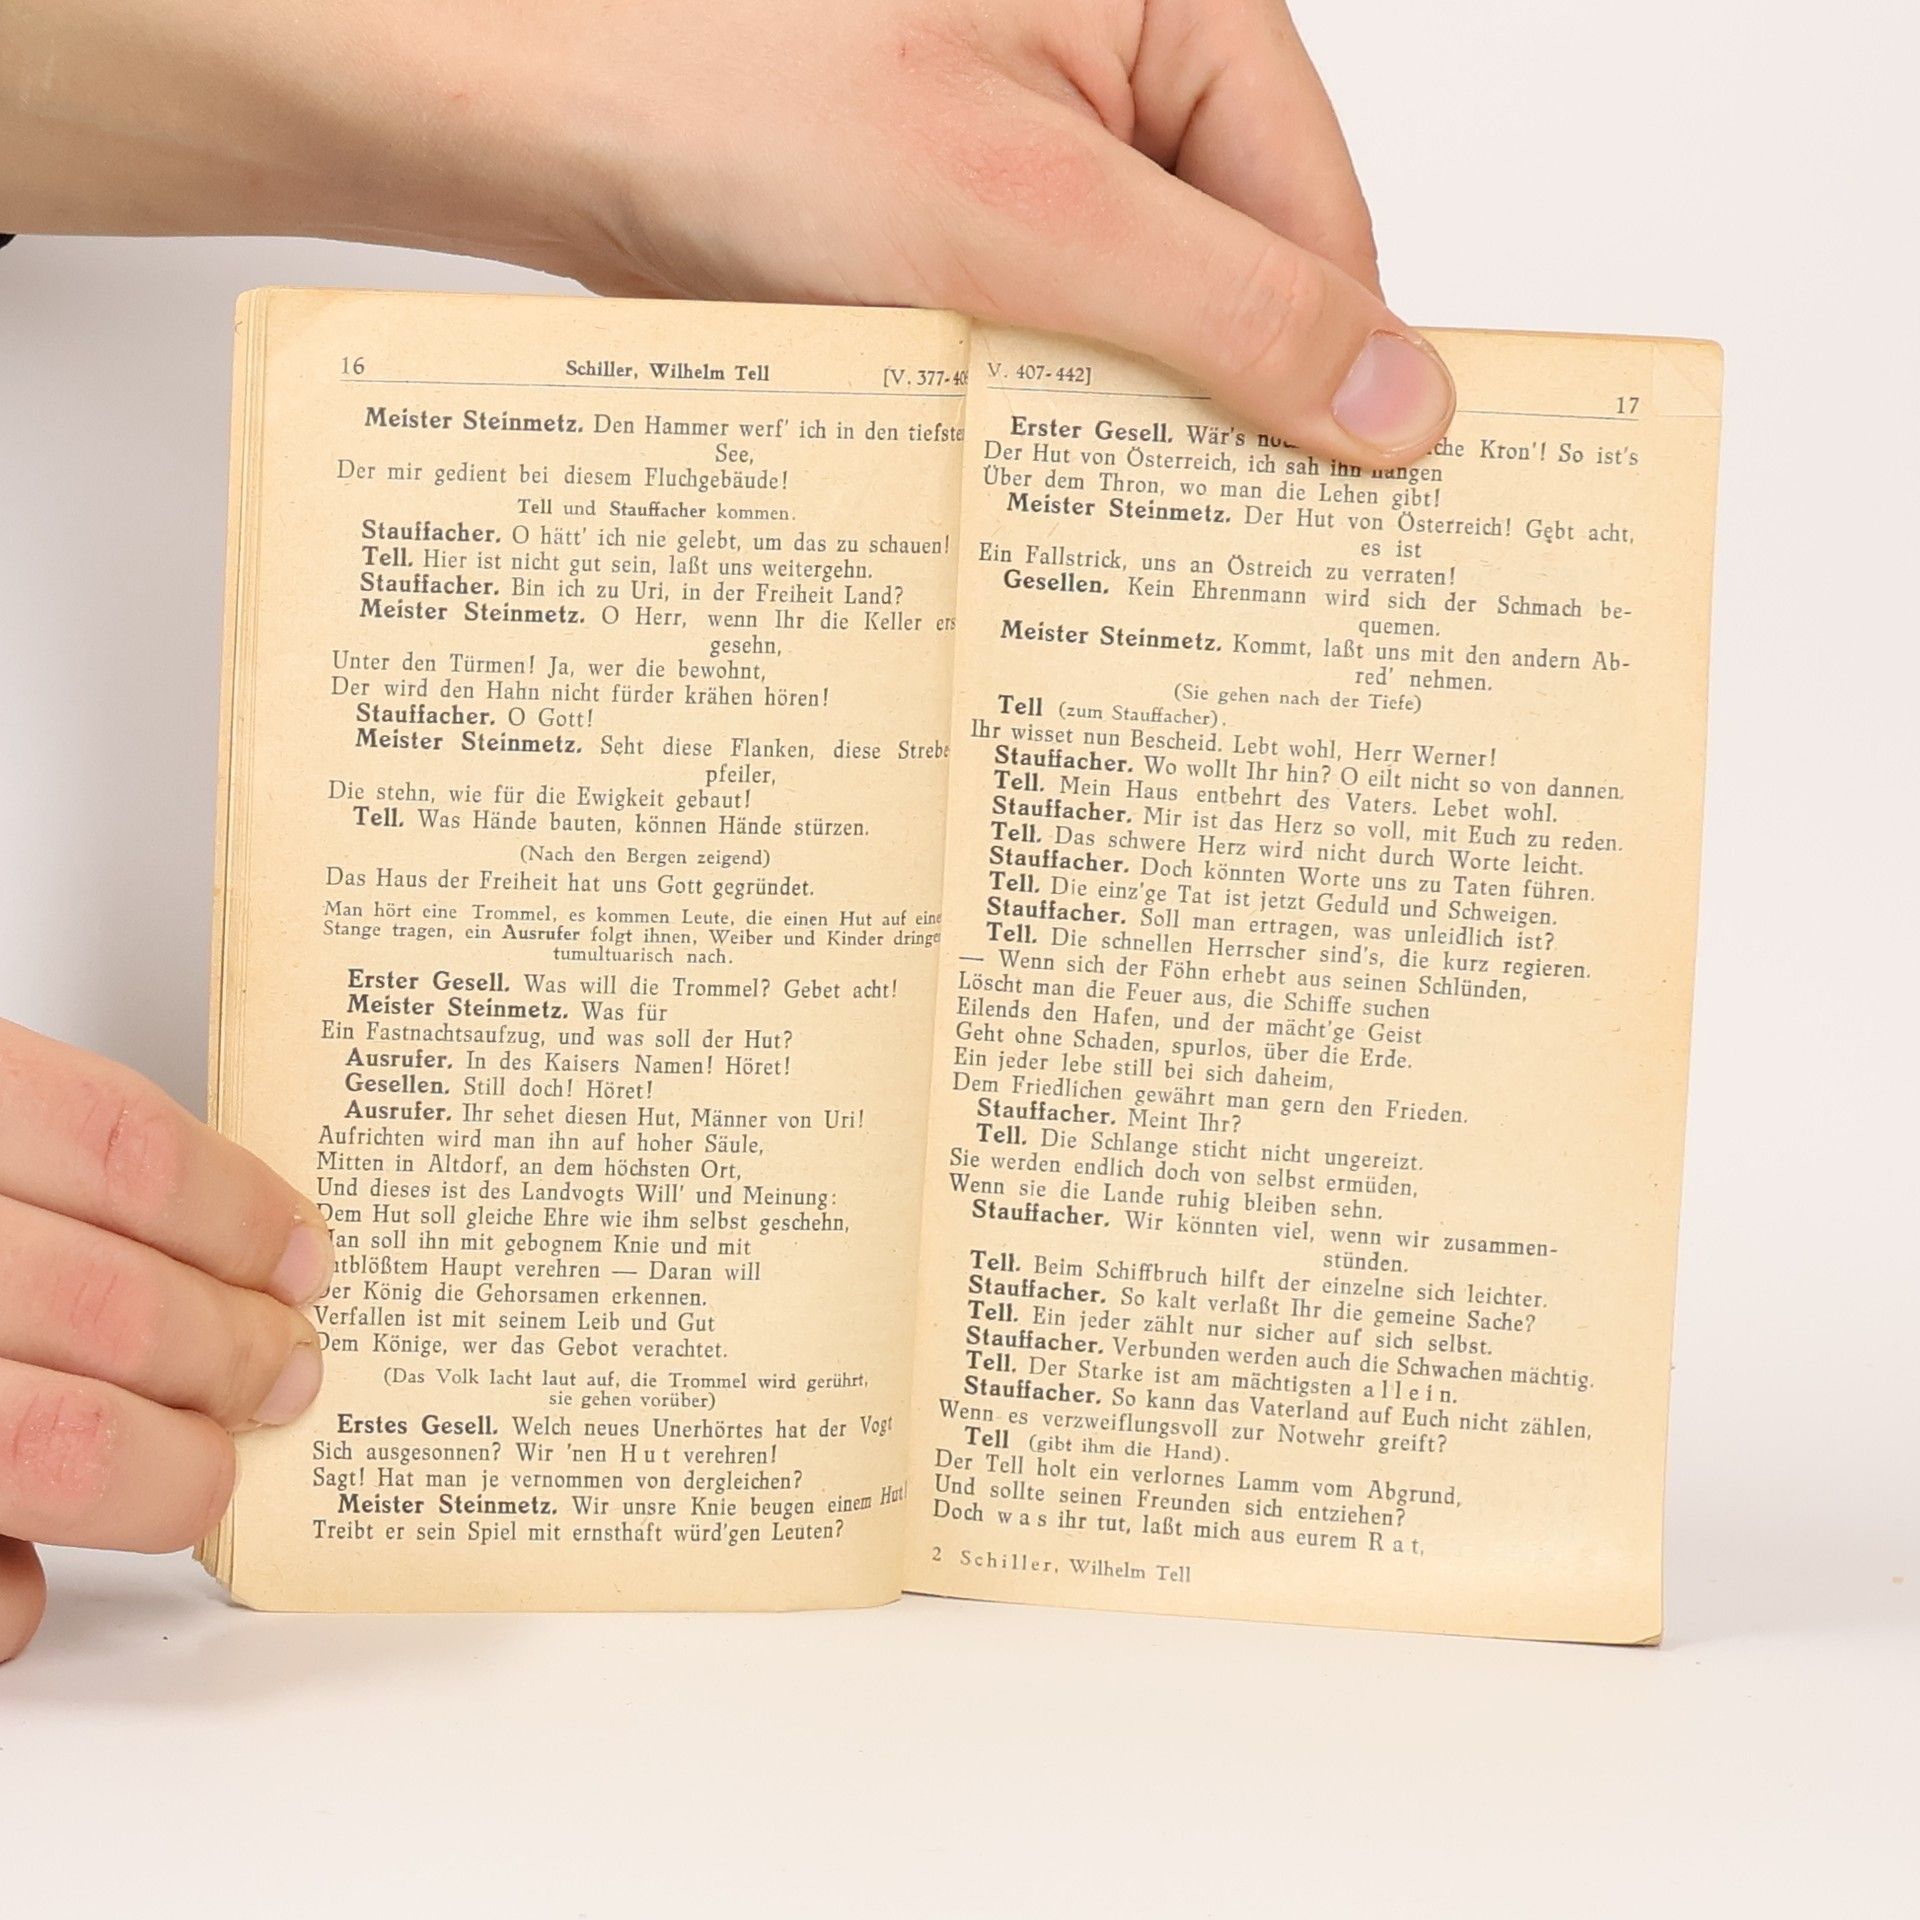 16 Schiller, Wilhelm Tell [V. 377-
Meister Steinmetz. Den Hammer werf' ich in den
See,
Der mir gedient bei diesem Fluchgebäude!
Tell und Stauffacher kommen.
Stauffacher. O hätt' ich nie gelebt, um das zu schauen!
Tell. Hier ist nicht gut sein, laßt uns weitergehn.
Stauffacher. Bin ich zu Uri, in der Freiheit Land?
Meister Steinmetz. O Herr, wenn Ihr die Keller
gesehn,
Unter den Türmen! Ja, wer die bewohnt,
Der wird den Hahn nicht fürder krähen hören!
Stauffacher. O Gott!
Meister Steinmetz. Seht diese Flanken, diese
pfeiler,
Die stehn, wie für die Ewigkeit gebaut!
Tell. Was Hände bauten, können Hände stürzen.
(Nach den Bergen zeigend)
Das Haus der Freiheit hat uns Gott gegründet.
Man hört eine Trommel, es kommen Leute, die einen Hut auf
Stange tragen, ein Ausrufer folgt ihnen, Weiber und Kinder
tumultuarisch nach.
Erster Gesell. Was will die Trommel? Gebet acht!
Meister Steinmetz. Was für
Ein Fastnachtsaufzug, und was soll der Hut?
Ausrufer. In des Kaisers Namen! Höret!
Gesellen. Still doch! Höret!
Ausrufer. Ihr sehet diesen Hut, Männer von Uri!
Aufrichten wird man ihn auf hoher Säule,
Mitten in Altdorf, an dem höchsten Ort,
Und dieses ist des Landvogts Will' und Meinung:
Dem Hut soll gleiche Ehre wie ihm selbst geschehn,
soll ihn mit gebognem Knie und mit
Haupt verehren — Daran will
Der König die Gehorsamen erkennen.
Verfallen ist mit seinem Leib und Gut
Dem Könige, wer das Gebot verachtet.
(Das Volk lacht laut auf, die Trommel wird gerührt,
sie gehen vorüber)
Erstes Gesell. Welch neues Unerhörtes hat der Vogt
Sich ausgesonnen? Wir 'nen Hut verehren!
Sagt! Hat man je vernommen von dergleichen?
Meister Steinmetz. Wir unsre Knie beugen einem Hut!
Treibt er sein Spiel mit ernsthaft würd'gen Leuten?
V. 407-442] 17
Erster Gesell. Wär's Kron'! So ist's
Der Hut von Österreich, ich sah ihn hangen
Über dem Thron, wo man die Lehen gibt!
Meister Steinmetz. Der Hut von Österreich! Gebt acht,
es ist
Ein Fallstrick, uns an Östreich zu verraten!
Gesellen. Kein Ehrenmann wird sich der Schmach be-
quemen.
Meister Steinmetz. Kommt, laßt uns mit den andern Ab-
red' nehmen.
(Sie gehen nach der Tiefe)
Tell (zum Stauffacher).
Ihr wisset nun Bescheid. Lebt wohl, Herr Werner!
Stauffacher. Wo wollt Ihr hin? O eilt nicht so von dannen.
Tell. Mein Haus entbehrt des Vaters. Lebet wohl.
Stauffacher. Mir ist das Herz so voll, mit Euch zu reden.
Tell. Das schwere Herz wird nicht durch Worte leicht.
Stauffacher. Doch könnten Worte uns zu Taten führen.
Tell. Die einz'ge Tat ist jetzt Geduld und Schweigen.
Stauffacher. Soll man ertragen, was unleidlich ist?
Tell. Die schnellen Herrscher sind's, die kurz regieren.
— Wenn sich der Föhn erhebt aus seinen Schlünden,
Löscht man die Feuer aus, die Schiffe suchen
Eilends den Hafen, und der mächt'ge Geist
Geht ohne Schaden, spurlos, über die Erde.
Ein jeder lebe still bei sich daheim,
Dem Friedlichen gewährt man gern den Frieden.
Stauffacher. Meint Ihr?
Tell. Die Schlange sticht nicht ungereizt.
Sie werden endlich doch von selbst ermüden,
Wenn sie die Lande ruhig bleiben sehn.
Stauffacher. Wir könnten viel, wenn wir zusammen-
stünden.
Tell. Beim Schiffbruch hilft der einzelne sich leichter.
Stauffacher. So kalt verlaßt Ihr die gemeine Sache?
Tell. Ein jeder zählt nur sicher auf sich selbst.
Stauffacher. Verbunden werden auch die Schwachen mächtig.
Tell. Der Starke ist am mächtigsten allein.
Stauffacher. So kann das Vaterland auf Euch nicht zählen,
Wenn es verzweiflungsvoll zur Notwehr greift?
Tell (gibt ihm die Hand).
Der Tell holt ein verlornes Lamm vom Abgrund,
Und sollte seinen Freunden sich entziehen?
Doch was ihr tut, laßt mich aus eurem Rat,
2 Schiller, Wilhelm Tell